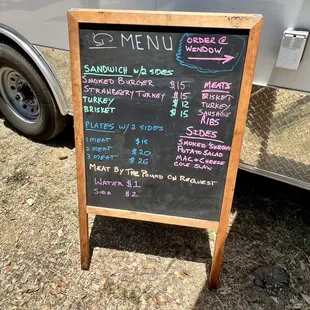 MENU
ORDER @
WINDOW
SANDWICH W/2 SIDES
SMOKED BURGER $15
STRAWBERRY TURKEY $15
TURKEY $12
BRISKET $15
PLATES W/2 SIDES
1 MEAT $15
2 MEAT $20
3 MEAT $26
MEATS
BRISKET
TURKEY
SAUSAGE
RIBS
SIDES
POTATO SALAD
MAC & CHEESE
COLE SLAW
MEAT BY THE POUND ON REQUEST
WATER $1
SODA $2